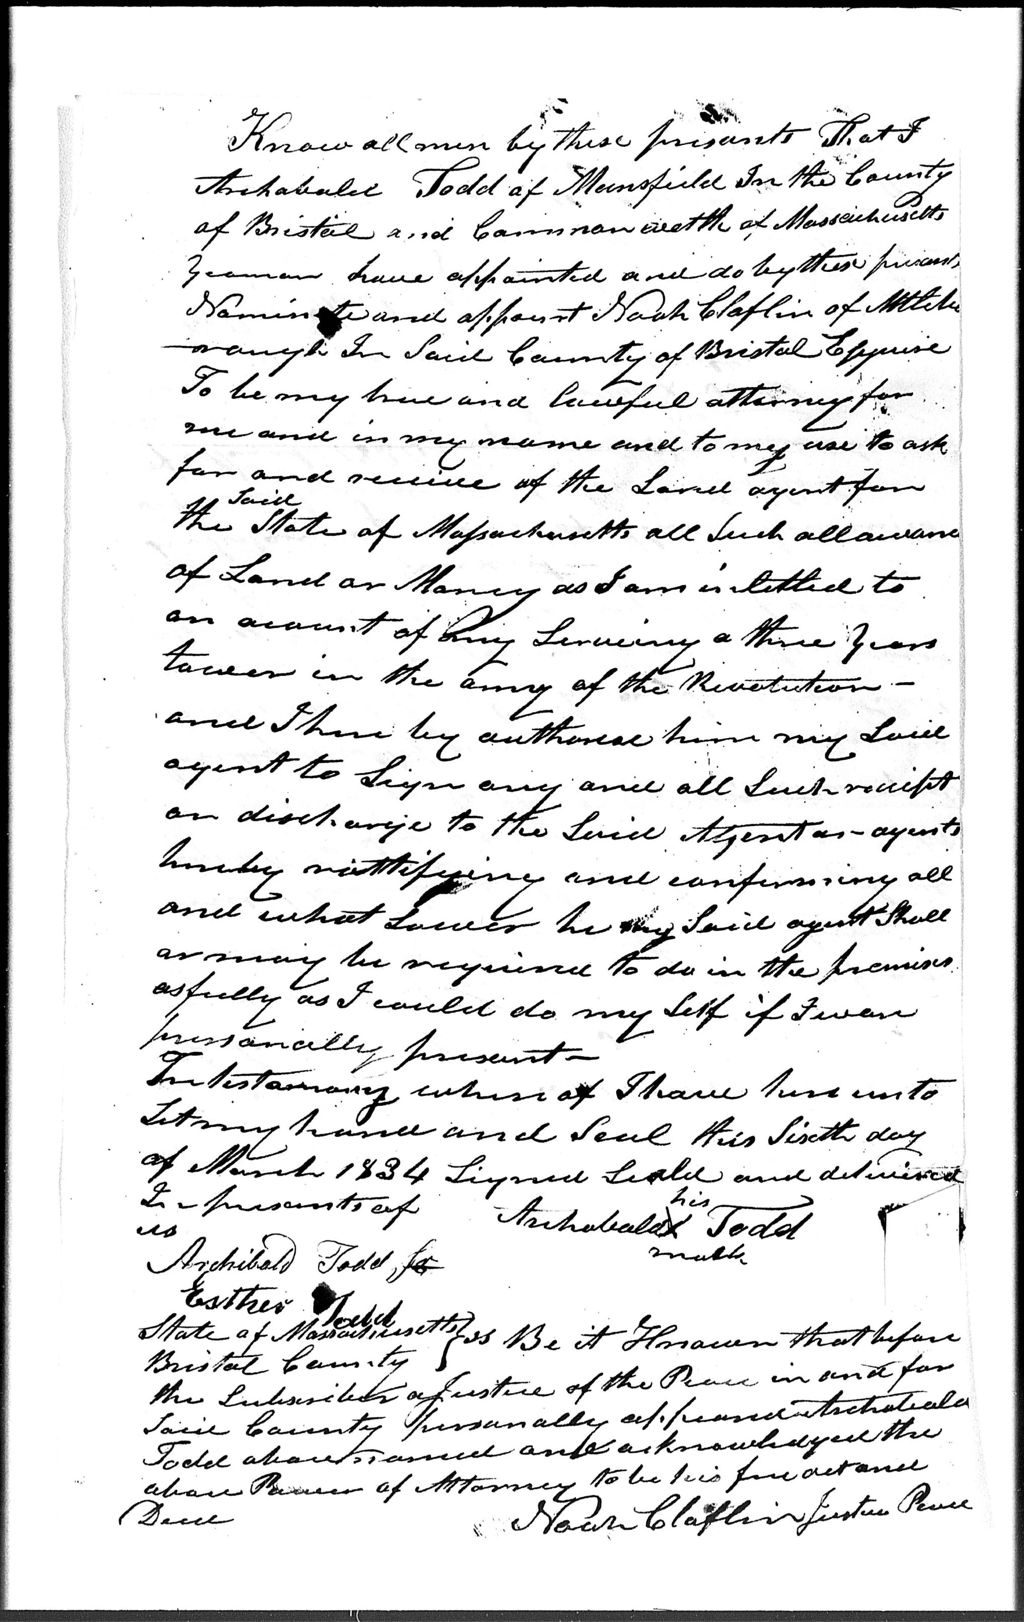 Know all men by these presants That I
Archabald Todd of Mansfield In the County
of Bristol and Commonwealth of Massachusetts
Yeoman have appointed and do by these presants
Nominate and appoint Noah Claflin of Attlebo
-rough In Said County of Bristol Esquire
To be my true and lawful attorney for
me and in my name and to my use to ask
for and receive of the Land agent for
Said
the State of Massachusetts all Such allowance
of Land or Money as I am intitled to
on account of my Serveing a three Years
tower in the army of the Revolution -
and I here by authorise him my Said
agent to Sign any and all Such receipt
or discharge to the Said Agent or-agents
hereby rattifying and confirming all
and what Soever he my Said agent Shall
or may be required to do in the premises
as fully as I could do my Self if I ware
personally present -
In testamony where of I have here unto
Set my hand and Seal this Sixth day
of March 1834 Signed Seald and delivered
In presants of
us
his
Archabald X Todd
mark
Archibald Todd, Jr
Esther Todd
State of Massachusetts } ss Be it Known that before
Bristol County
the Subscriber a Justice of the Peace in and for
Said County personally appeared Archabald
Todd above named and acknowledged the
above Power of Attorney to be his free act and
Deed
Noah Claflin Justice Peace